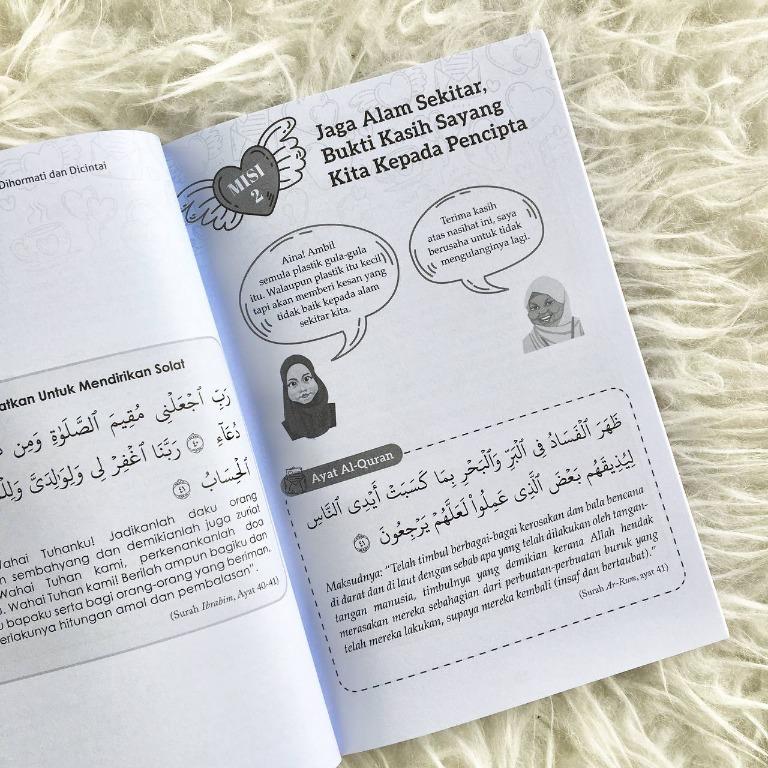 Dihormati dan Dicintai
Untuk Mendirikan Solat
رَبِّ ٱجْعَلْنِى مُقِيمَ ٱلصَّلَوٰةِ وَمِن
دُعَآءِ ٤٠ رَبَّنَا ٱغْفِرْ لِى وَلِوَٰلِدَىَّ
ٱلْحِسَابُ ٤١
Tuhanku! Jadikanlah daku orang
sembahyang dan demikianlah juga zuriat
Wahai Tuhan kami, perkenankanlah doa
Wahai Tuhan kami! Berilah ampun bagiku dan
bapaku serta bagi orang-orang yang beriman,
hitungan amal dan pembalasan".
(Surah Ibrahim, Ayat 40-41)
MISI
2
Jaga Alam Sekitar,
Bukti Kasih Sayang
Kita Kepada Pencipta
Aina! Ambil
semula plastik gula-gula
itu. Walaupun plastik itu kecil
tapi akan memberi kesan yang
tidak baik kepada alam
sekitar kita.
Terima kasih
atas nasihat ini, saya
berusaha untuk tidak
mengulanginya lagi.
Ayat Al-Quran
ظَهَرَ ٱلْفَسَادُ فِى ٱلْبَرِّ وَٱلْبَحْرِ بِمَا كَسَبَتْ أَيْدِى ٱلنَّاسِ
لِيُذِيقَهُم بَعْضَ ٱلَّذِى عَمِلُوا۟ لَعَلَّهُمْ يَرْجِعُونَ ٤١
Maksudnya: "Telah timbul berbagai-bagai kerosakan dan bala bencana
di darat dan di laut dengan sebab apa yang telah dilakukan oleh tangan-
tangan manusia, timbulnya yang demikian kerana Allah hendak
merasakan mereka sebahagian dari perbuatan-perbuatan buruk yang
telah mereka lakukan, supaya mereka kembali (insaf dan bertaubat)."
(Surah Ar-Rum, ayat 41)